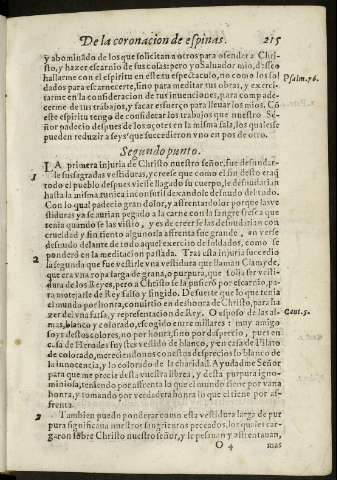 De la coronacion de espinas. 215
y abominādo de los que solicitan a otros para ofender a Chri-
sto, y hazer escarnio de sus cosas: pero yo Saluador mio, desseo
hallarme con el espiritu en este tu espectaculo, no como los sol
dados para escarnecerte, sino para meditar tus obras, y exerci- Psalm. 76.
tarme en la consideracion de tus inuenciones, para compade-
cerme de tus trabajos, y sacar esfuerço para lleuar los mios. Cō
este espiritu tengo de considerar los trabajos que nuestro Se-
ñor padecio despues de los açotes en la misma sala, los quales se
pueden reduzir a seys que succedieron vno en pos de otro.
Segundo punto.
1 LA primera injuria de Christo nuestro señor, fue desnudar-
le sus sagradas vestiduras, y creese que como el sin desto eraq̄
todo el pueblo despues viesse llagado su cuerpo, le desnudarian
hasta la misma tunica inconsutil dexandole desnudo del todo.
Con lo qual padecio gran dolor, y affrenta: dolor porque la ve-
stiduras ya se aurian pegado a la carne con la sangre fresca que
tenia quando se las vistio, y es de creer se las desnudarian con
crueldad y sin tiento alguno: la affrenta fue grande, en verse
desnudo delante de todo aquel exercito de soldados, como se
2 ponderò en la meditacion passada. Tras esta injuria sucedio
la segunda que fue vestirle vna vestidura que llaman Clamyde,
que era vna ropa larga de grana, o purpura, que solia ser vesti-
dura de los Reyes, pero a Christo se la pusieron por escarnio, pa-
ra motejarle de Rey falso y fingido. De suerte que lo que tenia
el mundo por honra, conuirtio en deshonra de Christo, para ha-
zer del vna farsa, y representacion de Rey. O esposo de las al- Cant. 5.
mas, blanco y colorado, escogido entre millares: muy amigo
soys destos colores, no por honra, sino por desprecio, pues en
casa de Herodes fuystes vestido de blanco, y en casa de Pilato
de colorado, mereciendonos con estos desprecios lo blanco de
la innocencia, y lo colorado de la charidad. Ayudadme Señor
para que me precie desta vuestra librea, y desta purpura igno-
miniosa, teniendo por affrenta lo que el mundo tiene por vana
honra, y tomando por verdadera honra lo que el tiene por af-
frenta.
2 Tambien puedo ponderar como esta vestidura larga de pur
pura significaua nuestros sangrientos peccados, los quales car-
garon sobre Christo nuestro señor, y le pesauan y affrentauan,
O 4 mas